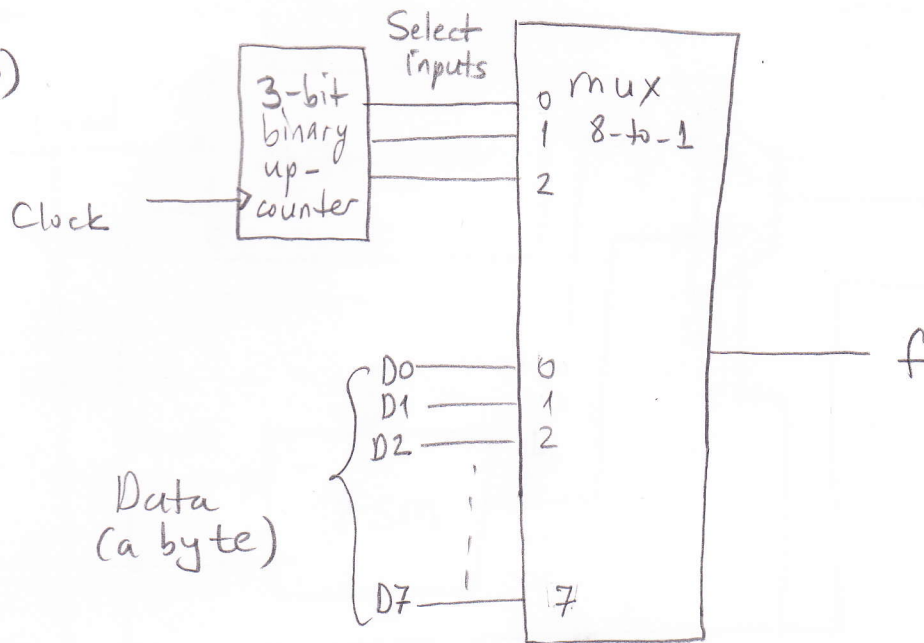 )
Select
inputs
3-bit
binary
up-
counter
Clock
0
1
2
mux
8-to-1
D0
D1
D2
D7
0
1
2
7
Data
(a byte)
f